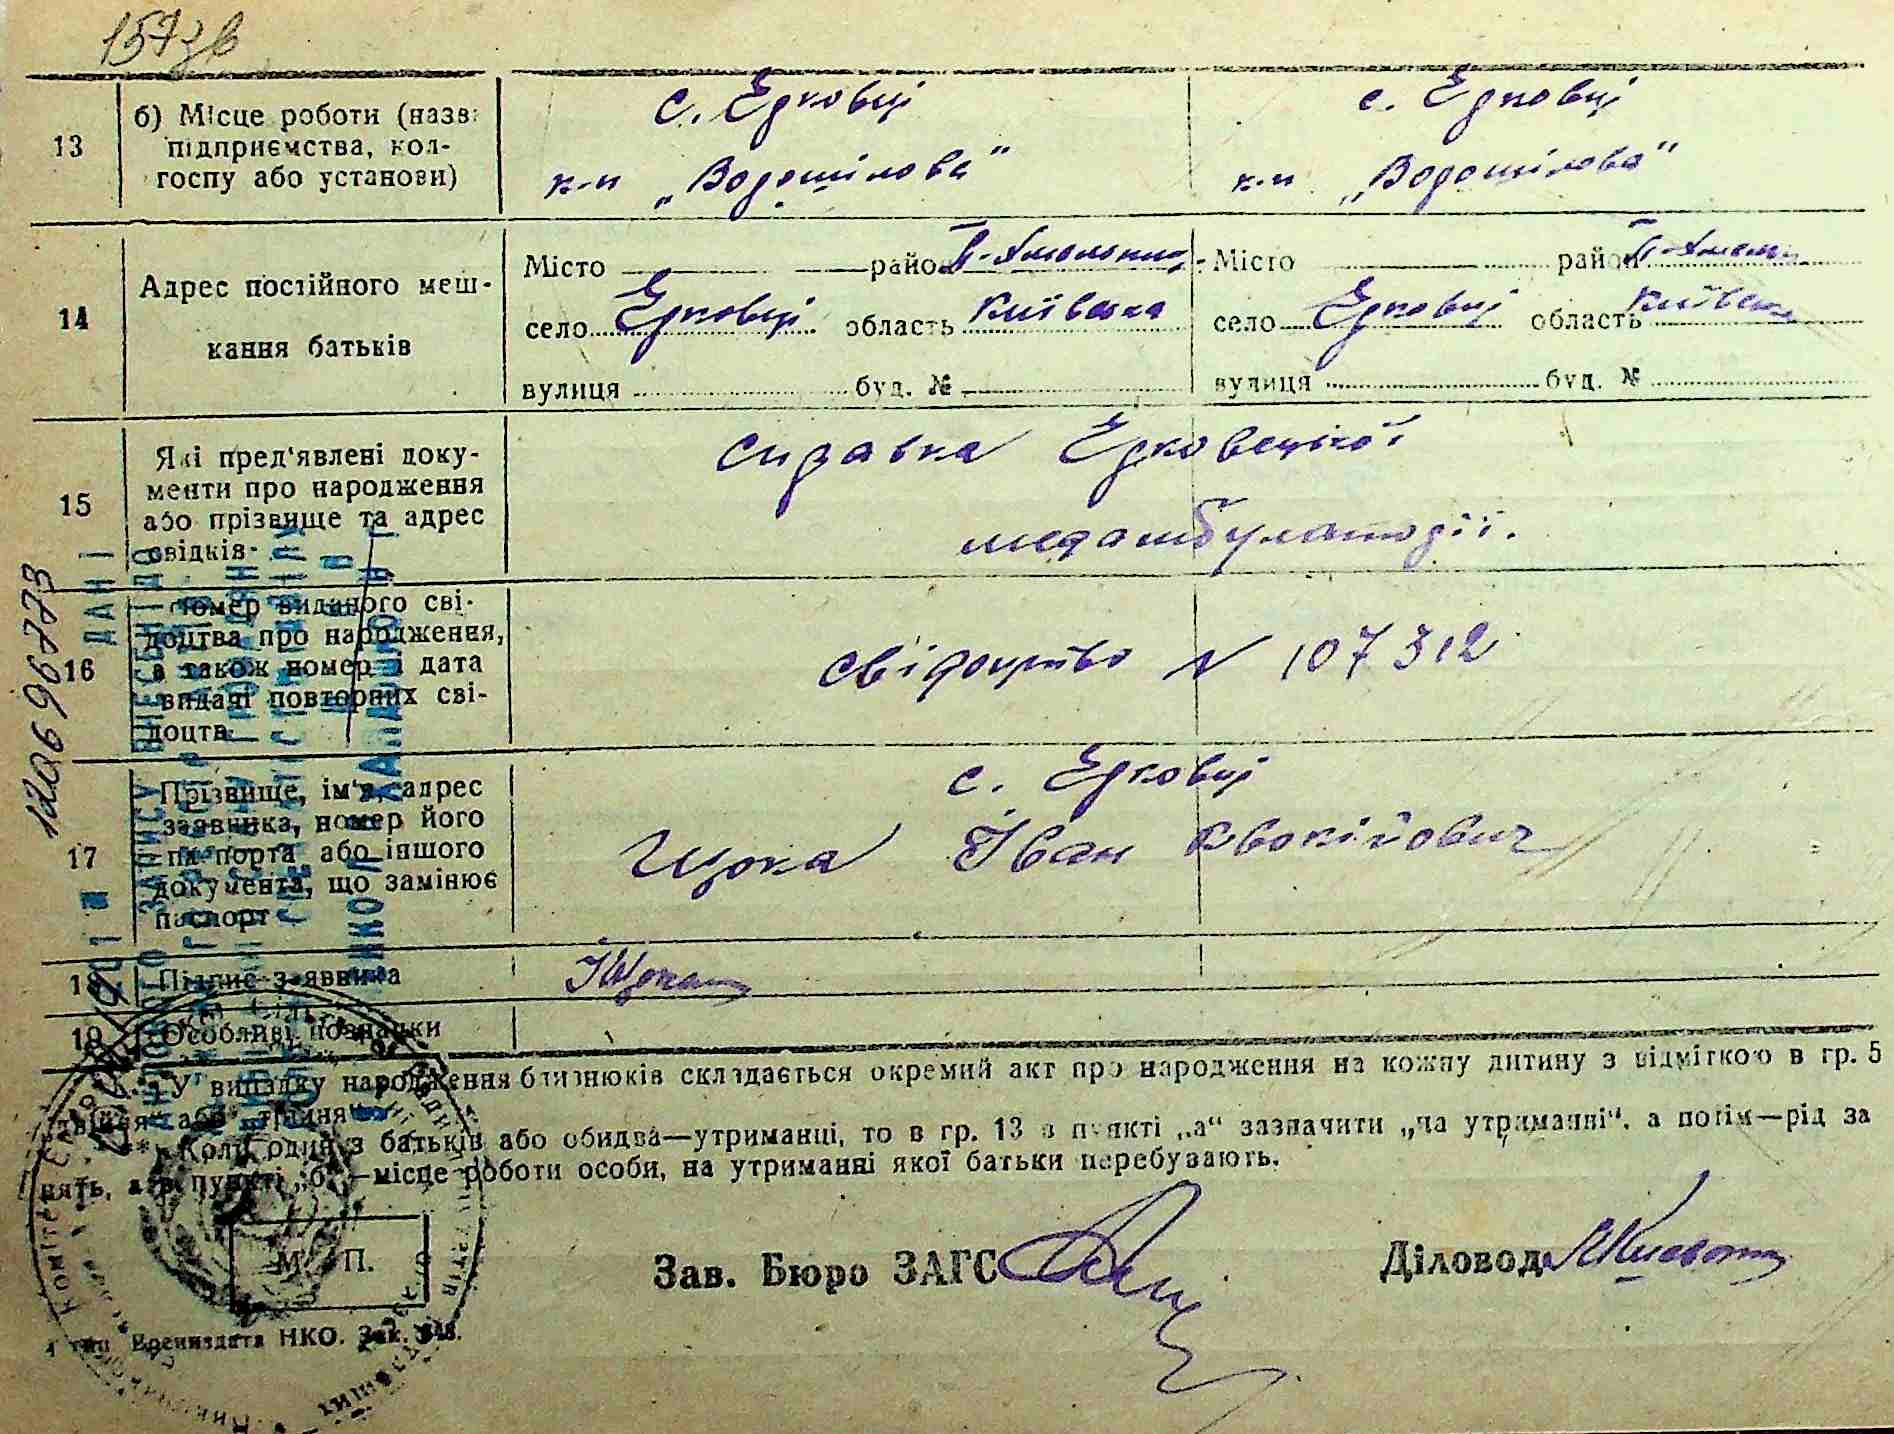 157зв
13
б) Місце роботи (назва
підприємства, кол-
госпу або установи)
с. Єрковці
к-п „Ворошілова“
с. Єрковці
к-п „Ворошілова“
14
Адрес постійного меш-
кання батьків
Місто район П-Хмельниц.
село Єрковці область Київська
вулиця буд. №
Місто район П-Хмельн
село Єрковці область Київськ
вулиця буд. №
15
Які пред'явлені доку-
менти про народження
або прізвище та адрес
свідків
справка Єрковецької
медамбулаторії.
16
Номер виданого сві-
доцтва про народження,
а також номер і дата
видачі повторних сві-
доцтв
свідоцтво N 107312
17
Прізвище, ім'я, адрес
заявника, номер його
паспорта або іншого
документа, що замінює
паспорт
с. Єрковці
Іван Овокійович
18
Підпис заявника
19
Особливі познаки
У випадку народження близнюків складається окремий акт про народження на кожну дитину з відміткою в гр. 5
„двійня“ або „трійня“
**) Коли один з батьків або обидва—утриманці, то в гр. 13 в пункті „а“ зазначити „на утриманні“, а потім—рід за
нять, а в пункті „б“—місце роботи особи, на утриманні якої батьки перебувають.
М. П.
Зав. Бюро ЗАГС
Діловод
тип. Воениздата НКО. Зак. 848.